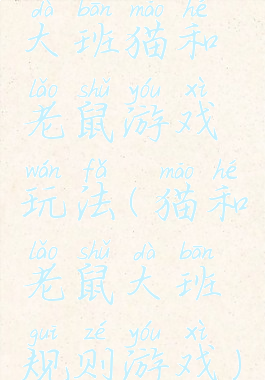 dà bān māo hé
大班猫和
lǎo shǔ yóu xì
老鼠游戏
wán fǎ māo hé
玩法(猫和
lǎo shǔ dà bān
老鼠大班
guī zé yóu xì
规则游戏)